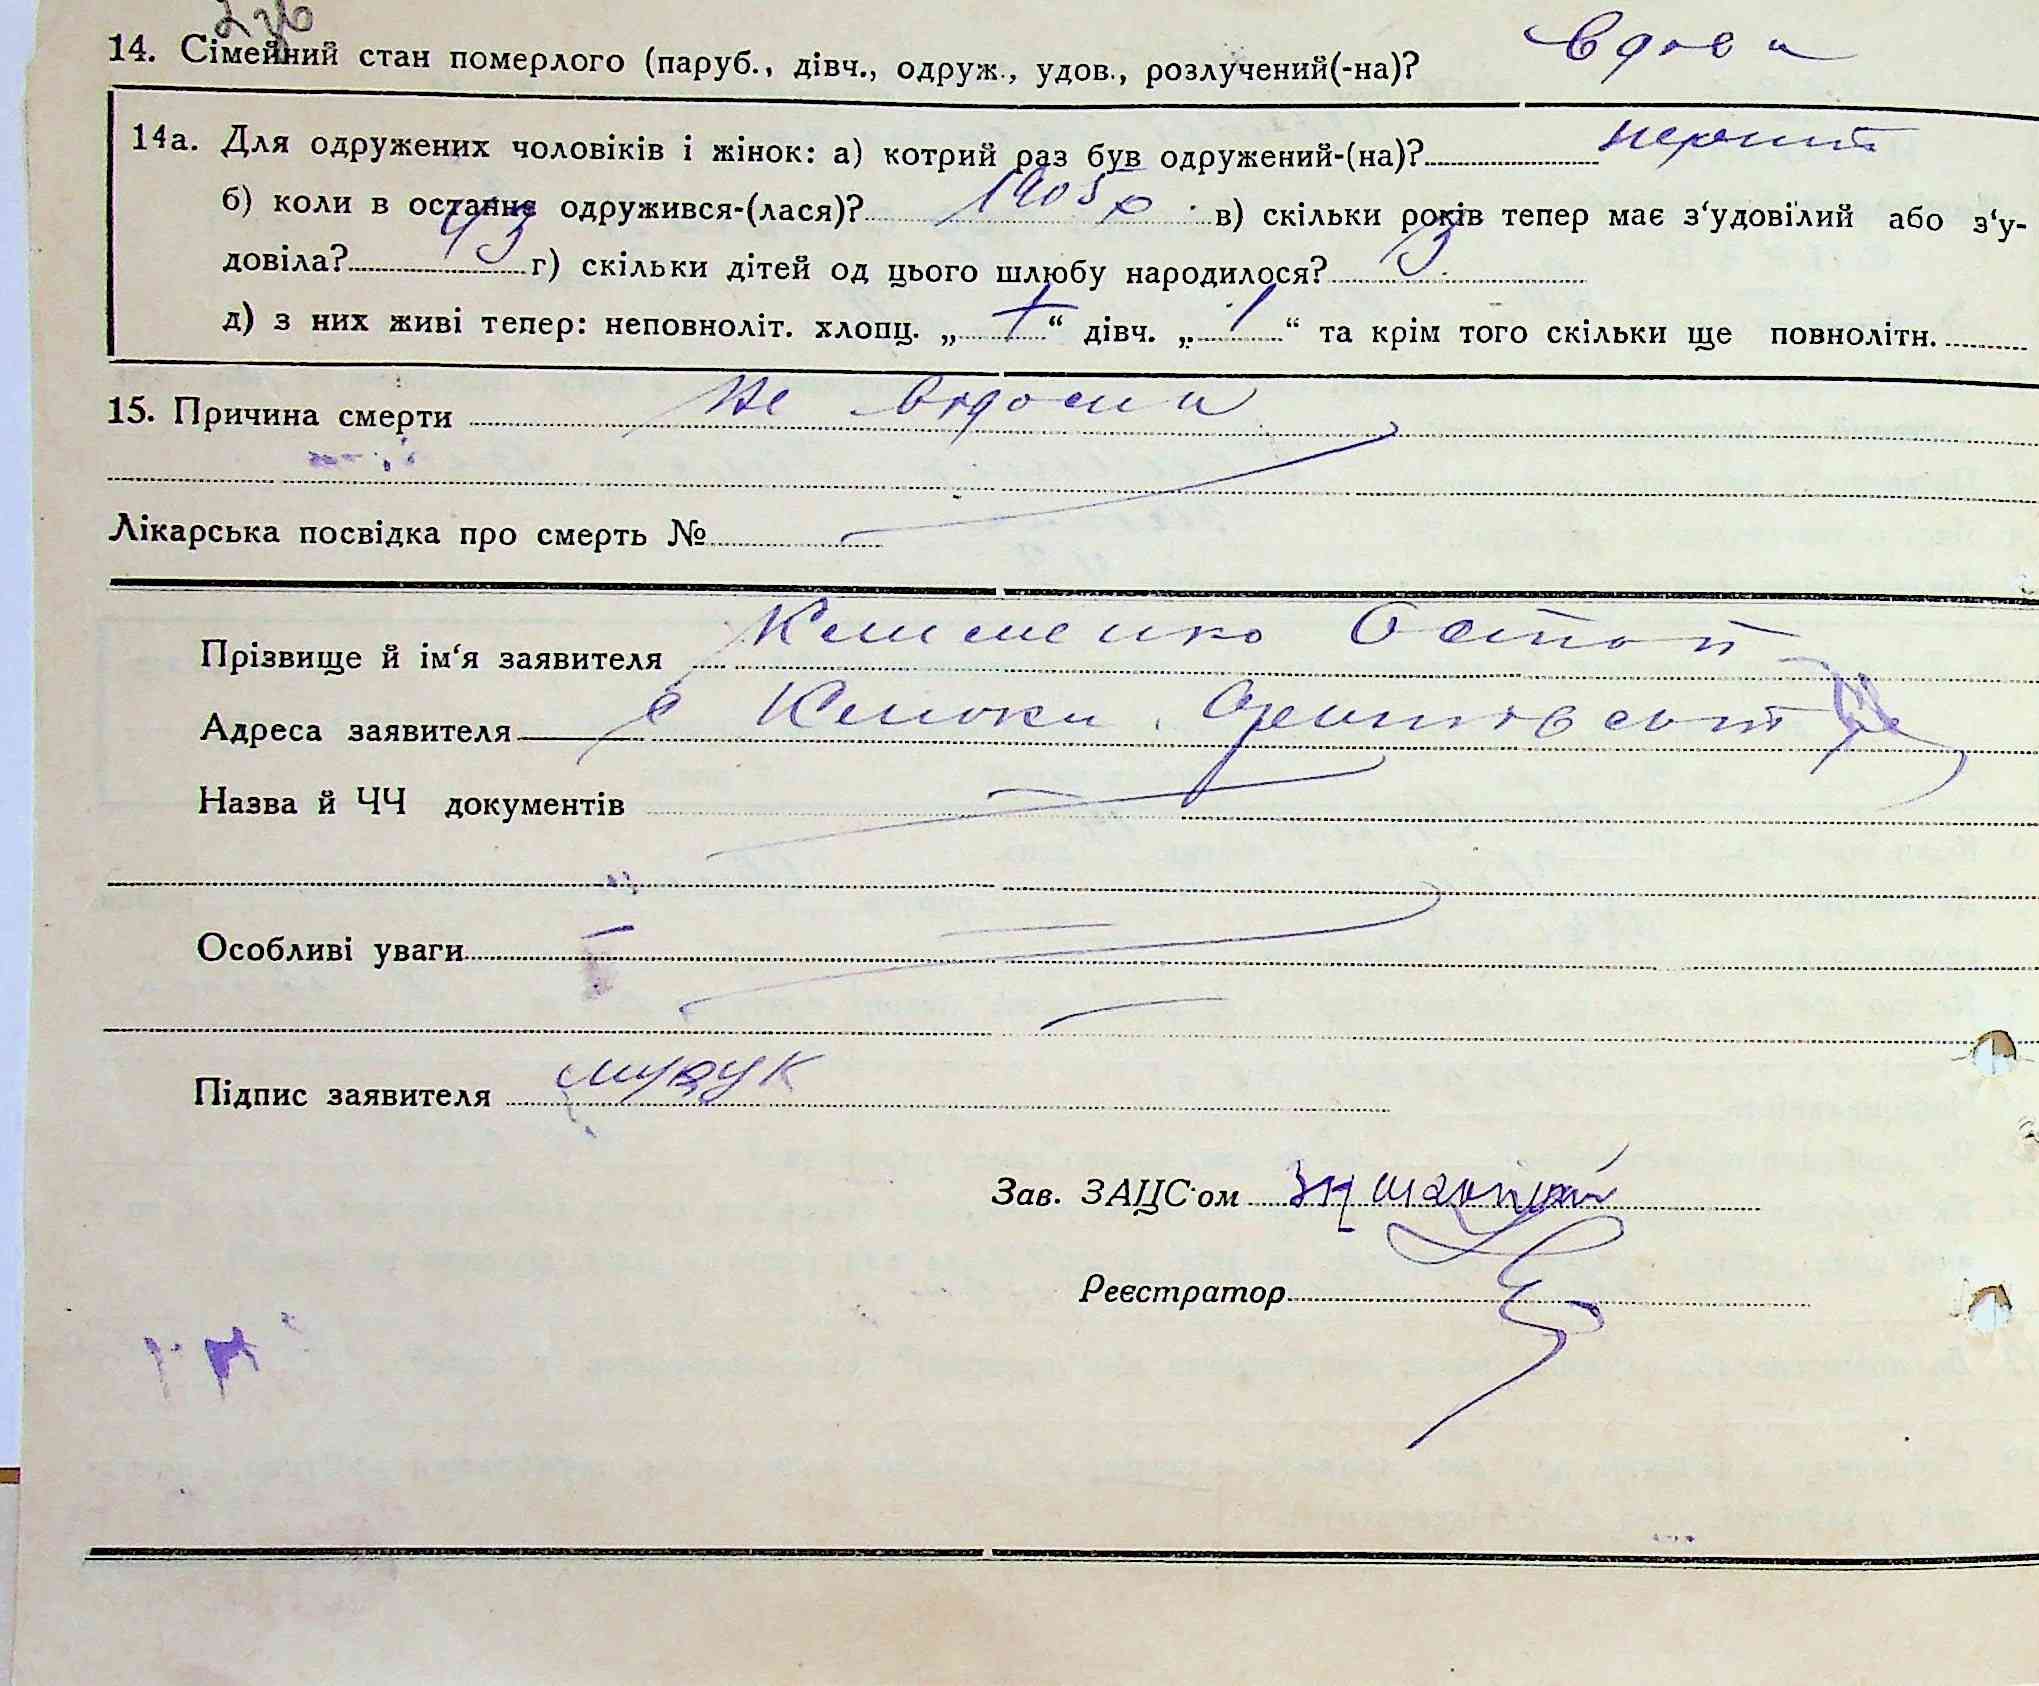 14. Сімейний стан померлого (паруб., дівч., одруж., удов., розлучений(-на)? вдова
14а. Для одружених чоловіків і жінок: а) котрий раз був одружений-(на)? перший
б) коли в останнє одружився-(лася)? 1905 р в) скільки років тепер має з‘удовілий або з‘у-
довіла? 43 г) скільки дітей од цього шлюбу народилося? 3
д) з них живі тепер: неповноліт. хлопц. „ 1 “ дівч. „ 1 “ та крім того скільки ще повнолітн.
15. Причина смерти Не відома
Лікарська посвідка про смерть №
Прізвище й ім‘я заявителя Клименко Остап
Адреса заявителя с Клюки
Назва й ЧЧ документів
Особливі уваги
Підпис заявителя
Зав. ЗАЦС‘ом
Реєстратор